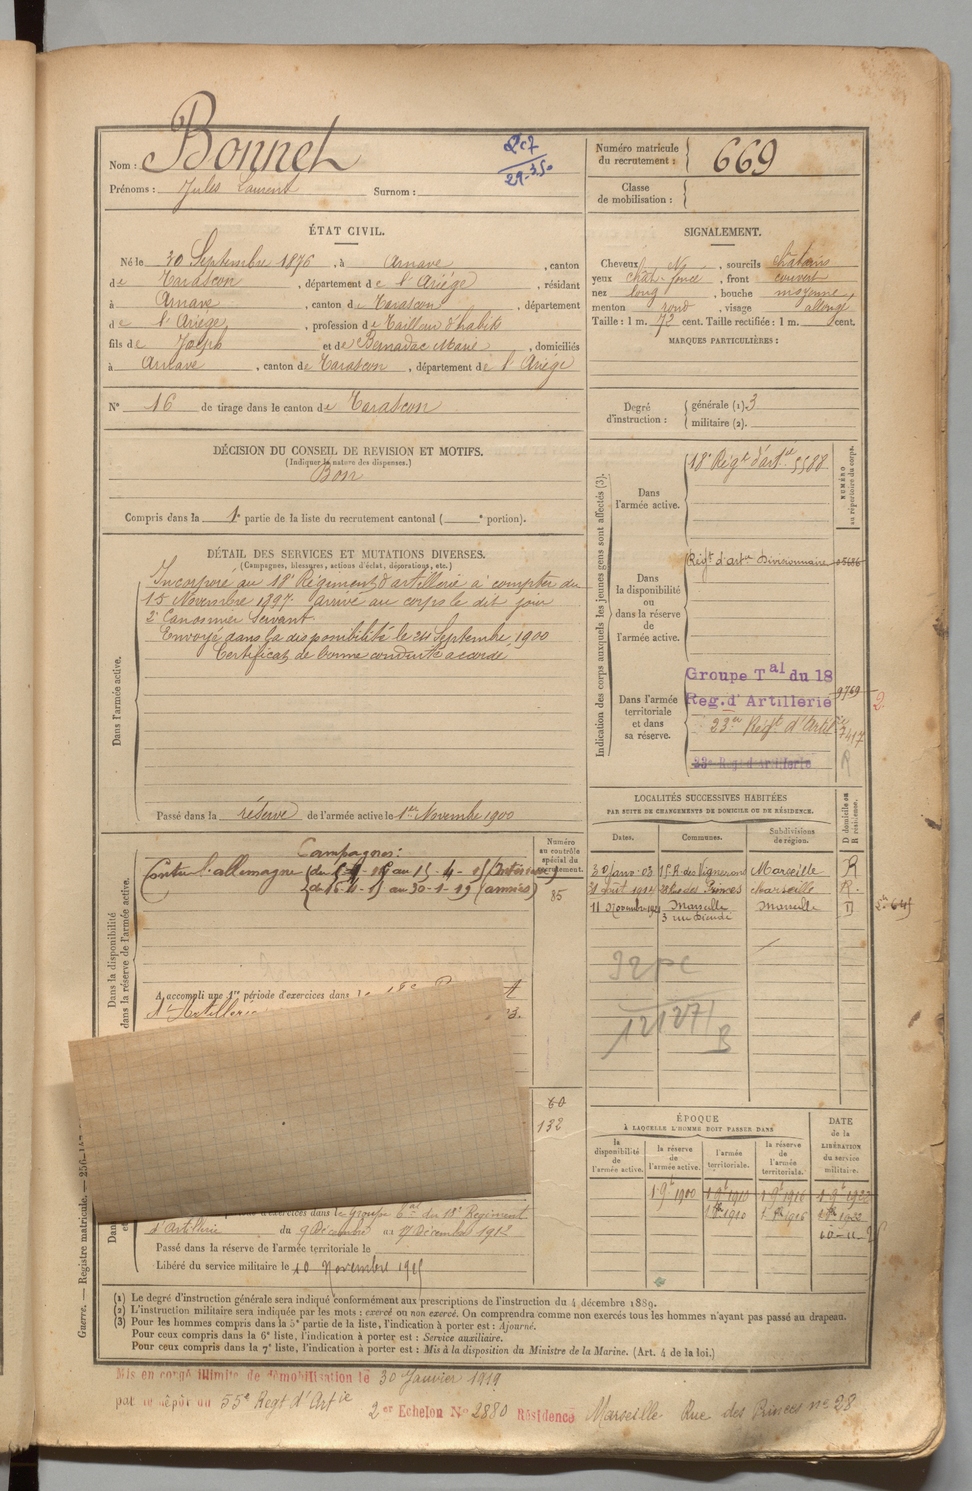 Nom : Bonnet
Prénoms : Jules Laurent Surnom :
29-3-50
Numéro matricule du recrutement : 669
Classe de mobilisation :
ÉTAT CIVIL.
Né le 30 Septembre 1876, à Arnave, canton
de Tarascon, département de l'Ariége, résidant
à Arnave, canton de Tarascon, département
de l'Ariége, profession de tailleur d'habits
fils de Joseph et de Bernadac Marie, domiciliés
à Arnave, canton de Tarascon, département de l'Ariége
N° 16 de tirage dans le canton de Tarascon
SIGNALEMENT.
Cheveux , sourcils châtains
yeux chât-foncé, front couvert
nez long, bouche moyenne,
menton rond, visage allongé
Taille : 1 m. 72 cent. Taille rectifiée : 1 m. cent.
MARQUES PARTICULIÈRES :
Degré d'instruction : générale (1). 3
militaire (2).
DÉCISION DU CONSEIL DE REVISION ET MOTIFS.
(Indiquer la nature des dispenses.)
Bon
Compris dans la 1e partie de la liste du recrutement cantonal ( e portion).
DÉTAIL DES SERVICES ET MUTATIONS DIVERSES.
(Campagnes, blessures, actions d'éclat, décorations, etc.)
Dans l'armée active.
Incorporé au 18e Régiment d'artillerie à compter du
15 Novembre 1897 arrivé au corps le dit jour
2e Canonnier Servant
Envoyé dans la disponibilité le 24 Septembre 1900
Certificat de bonne conduite accordé
Passé dans la réserve de l'armée active le 1er Novembre 1900
Indication des corps auxquels les jeunes gens sont affectés (3).
NUMÉRO au répertoire du corps.
Dans l'armée active.
18e Régt d'arte 5588
Dans la disponibilité ou dans la réserve de l'armée active.
Régt d'arte Divisionnaire
Dans l'armée territoriale et dans sa réserve.
Groupe Tal du 18
Reg. d'Artillerie 9769
2.
23e Régt d'Artie
7417
R
33e Reg d'Artillerie
Dans la disponibilité
dans la réserve de l'armée active.
Campagnes :
Contre l'allemagne
au 15-4-15 (intérieur)
du 16-4-15 au 30-1-19 (armées)
Numéro au contrôle spécial du recrutement.
85
A accompli une 1re période d'exercices dans le 18e
d'Artillerie
60
132
LOCALITÉS SUCCESSIVES HABITÉES
PAR SUITE DE CHANGEMENTS DE DOMICILE OU DE RÉSIDENCE.
Dates. Communes. Subdivisions de région. D domicile ou R résidence.
30 Janv. 03 15 R. des Vignerons Marseille R
28 Rue des Princes Marseille R.
11 Novembre Marseille Marseille D
3 rue Dieudé
92 pc
12127
B
ÉPOQUE
À LAQUELLE L'HOMME DOIT PASSER DANS
DATE de la LIBÉRATION du service militaire.
la disponibilité de l'armée active. la réserve de l'armée active. l'armée territoriale. la réserve de l'armée territoriale.
1 9e 1900 1 9e 1910 1 9e 1916 1 9e 1922
d'exercices dans le Groupe Tal du 18e Régiment
d'Artillerie du 9 Décembre au 17 Décembre 1912
Passé dans la réserve de l'armée territoriale le
Libéré du service militaire le 10 Novembre
Guerre. — Registre matricule.
(1) Le degré d'instruction générale sera indiqué conformément aux prescriptions de l'instruction du 4 décembre 1889.
(2) L'instruction militaire sera indiquée par les mots : exercé ou non exercé. On comprendra comme non exercés tous les hommes n'ayant pas passé au drapeau.
(3) Pour les hommes compris dans la 5e partie de la liste, l'indication à porter est : Ajourné.
Pour ceux compris dans la 6e liste, l'indication à porter est : Service auxiliaire.
Pour ceux compris dans la 7e liste, l'indication à porter est : Mis à la disposition du Ministre de la Marine. (Art. 4 de la loi.)
Mis en congé illimité de démobilisation le 30 Janvier 1919
par le dépôt du 55e Regt d'Artie
2er Echelon N° 2880 Résidence Marseille Rue des Princes n° 28